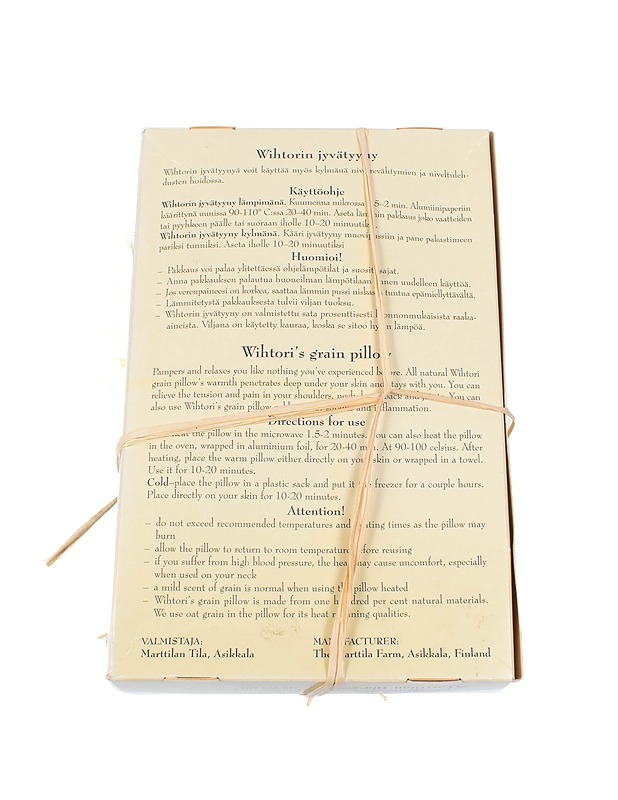 Wihtorin jyvätyyny
Wihtorin jyvätyynyä voit käyttää myös kylmänä nivelrevähtymien ja niveltuleh-
dusten hoidossa.
Käyttöohje
Wihtorin jyvätyyny lämpimänä. Kuumenna mikrossa 5–2 min. Alumiinipaperiin
käärittynä uunissa 90-110° C:ssa 20–40 min. Aseta lämmin pakkaus joko vaatteiden
tai pyyhkeen päälle tai suoraan iholle 10–20 minuutiksi.
Wihtorin jyvätyyny kylmänä. Kääri jyvätyyny muovipussiin ja pane pakastimeen
pariksi tunniksi. Aseta iholle 10–20 minuutiksi
Huomioi!
– Pakkaus voi palaa ylitettäessä ohjelämpötilat ja suositusajat.
– Anna pakkauksen palautua huoneilman lämpötilaan ennen uudelleen käyttöä.
– Jos verenpaineesi on korkea, saattaa lämmin pussi niskassa tuntua epämiellyttävältä.
– Lämmitetystä pakkauksesta tulvii viljan tuoksu.
– Wihtorin jyvätyyny on valmistettu sata prosenttisesti luonnonmukaisista raaka-
aineista. Viljana on käytetty kauraa, koska se sitoo hyvin lämpöä.
Wihtori's grain pillow
Pampers and relaxes you like nothing you've experienced before. All natural Wihtori
grain pillow's warmth penetrates deep under your skin and stays with you. You can
relieve the tension and pain in your shoulders, neck, back and joints. You can
also use Wihtori's grain pillow and inflammation.
Directions for use
heat the pillow in the microwave 1.5-2 minutes. You can also heat the pillow
in the oven, wrapped in aluminium foil, for 20-40 min. At 90-100 celsius. After
heating, place the warm pillow either directly on your skin or wrapped in a towel.
Use it for 10-20 minutes.
Cold–place the pillow in a plastic sack and put it the freezer for a couple hours.
Place directly on your skin for 10-20 minutes.
Attention!
– do not exceed recommended temperatures and heating times as the pillow may
burn
– allow the pillow to return to room temperature before reusing
– if you suffer from high blood pressure, the heat may cause uncomfort, especially
when used on your neck
– a mild scent of grain is normal when using the pillow heated
– Wihtori's grain pillow is made from one hundred per cent natural materials.
We use oat grain in the pillow for its heat retaining qualities.
VALMISTAJA:
Marttilan Tila, Asikkala
MANUFACTURER:
The Marttila Farm, Asikkala, Finland